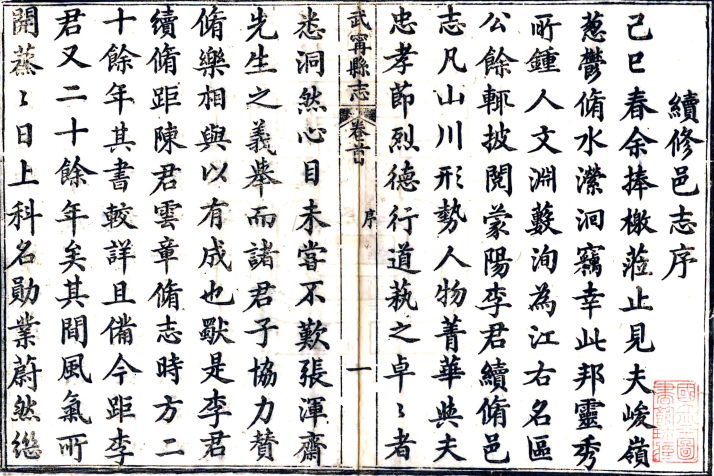 續修邑志序
己巳春余捧檄蒞止見夫峻嶺
葱鬱脩水瀠洄竊幸此邦靈秀
所鍾人文淵藪洵為江右名區
公餘輒披閱蒙陽李君續脩邑
志凡山川形勢人物菁華與夫
忠孝節烈德行道蓺之卓〻者
武寧縣志
卷首
序
一
悉洞然心目未嘗不歎張渾齋
先生之義舉而諸君子協力贊
脩樂相與以有成也歟是李君
續脩距陳君雲章脩志時方二
十餘年其書較詳且備今距李
君又二十餘年矣其間風氣所
開蒸〻日上科名勛業蔚然繼